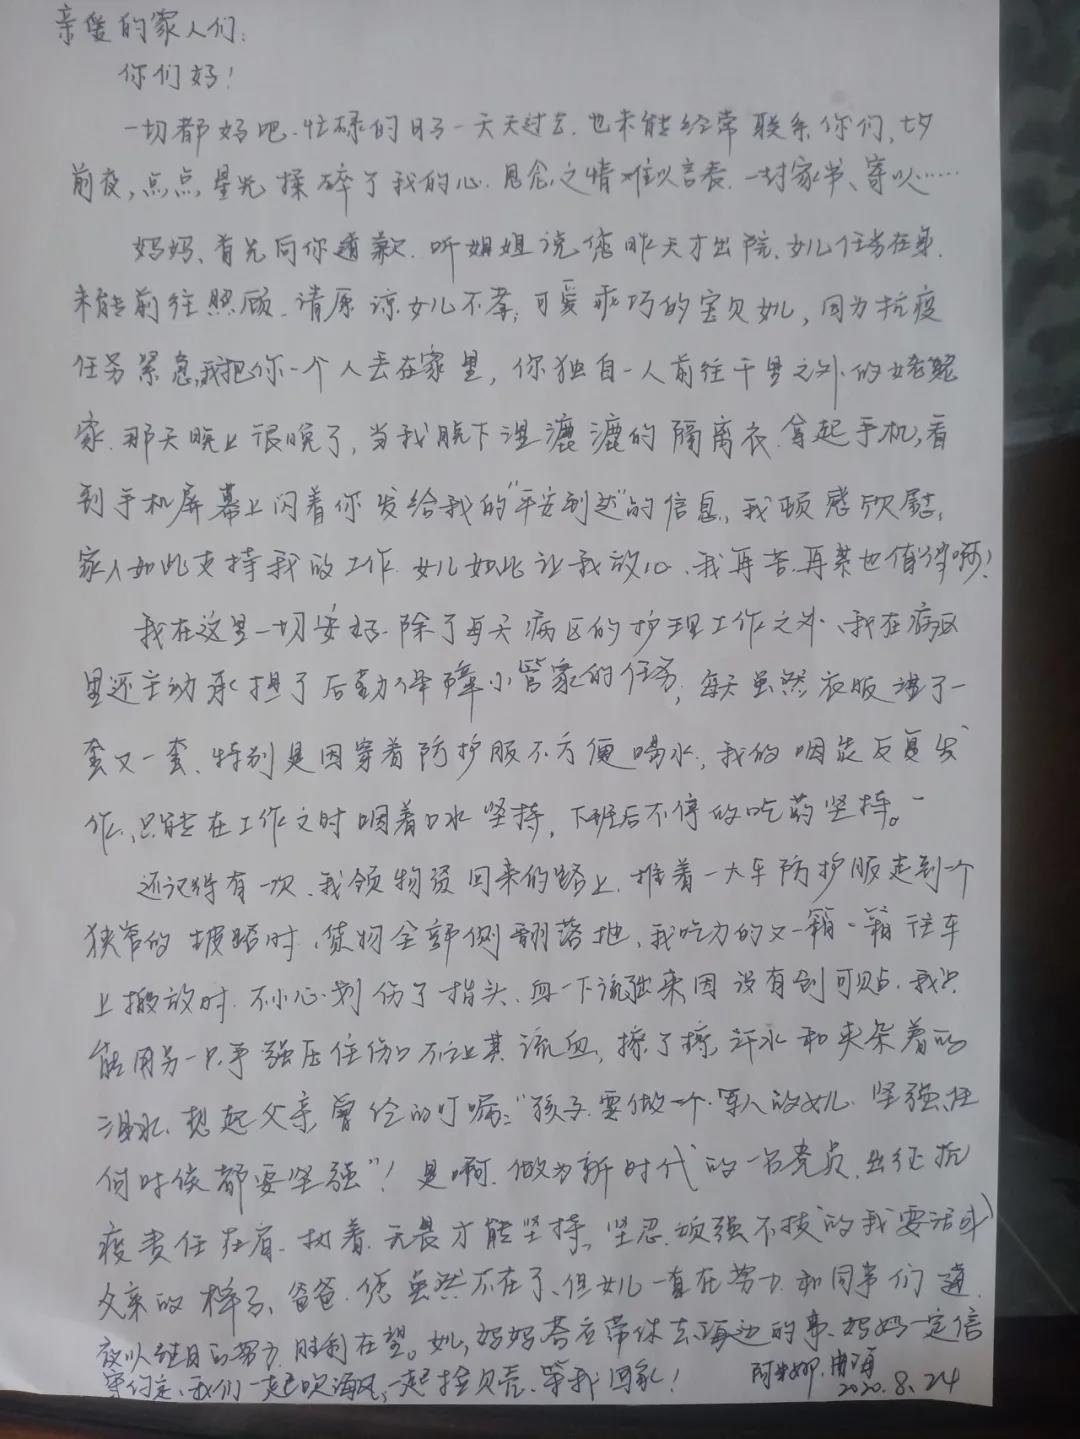 亲爱的家人们:
你们好!
一切都好吧.忙碌的日子一天天过去.也未能经常联系你们,七夕
前夜,点点星光揉碎了我的心.思念之情难以言表.一封家书、寄以……
妈妈、首先向你道歉.听姐姐说您昨天才出院.女儿任务在身.
未能前往照顾.请原谅女儿不孝;可爱乖巧的宝贝女儿,因为抗疫
任务紧急,我把你一个人丢在家里,你独自一人前往千里之外的姥姥
家.那天晚上很晚了,当我脱下湿漉漉的隔离衣.拿起手机,看
到手机屏幕上闪着你发给我的"平安到达"的信息,我顿感欣慰,
家人如此支持我的工作.女儿如此让我放心、我再苦再累也值得啊!
我在这里一切安好.除了每天病区的护理工作之外、我在病区
里还主动承担了后勤保障小管家的任务,每天虽然衣服湿了一
套又一套、特别是因穿着防护服不方便喝水,我的咽炎反复发
作,只能在工作之时咽着口水坚持,下班后不停的吃药坚持。
还记得有一次、我领物资回来的路上.推着一大车防护服走到一个
狭窄的坡路时、货物全部侧翻落地,我吃力的又一箱一箱往车
上搬放时.不小心划伤了指头、血一下流出来因没有创可贴.我只
能用另一只手强压住伤口不让其流血,擦了擦汗水和夹杂着的
泪水.想起父亲曾经的叮嘱:"孩子.要做一个军人的女儿.坚强,任
何时侯都要坚强"!是啊.做为新时代的一名党员.出征抗
疫责任在肩.执着.无畏才能坚持、坚忍.顽强不拔的我要活成
父亲的样子、爸爸.您虽然不在了、但女儿一直在努力.和同事们通
夜以继日的努力.胜利在望。女儿,妈妈答应带你去海边的事.妈妈一定信
守约定、我们一起吹海风,一起捡贝壳、等我回家!
2020.8.24